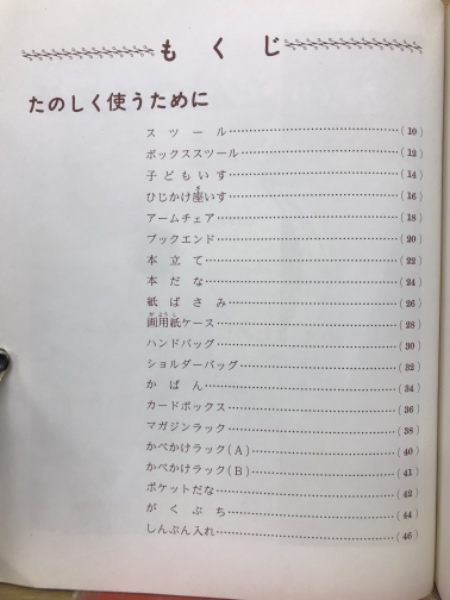 もくじ
たのしく使うために
スツール……………(10)
ボックススツール……………(12)
子どもいす……………(14)
ひじかけ座いす……………(16)
アームチェア……………(18)
ブックエンド……………(20)
本立て……………(22)
本だな……………(24)
紙ばさみ……………(26)
画用紙ケース……………(28)
ハンドバッグ……………(30)
ショルダーバッグ……………(32)
かばん……………(34)
カードボックス……………(36)
マガジンラック……………(38)
かべかけラック(A)……………(40)
かべかけラック(B)……………(41)
ポケットだな……………(42)
がくぶち……………(44)
しんぶん入れ……………(46)